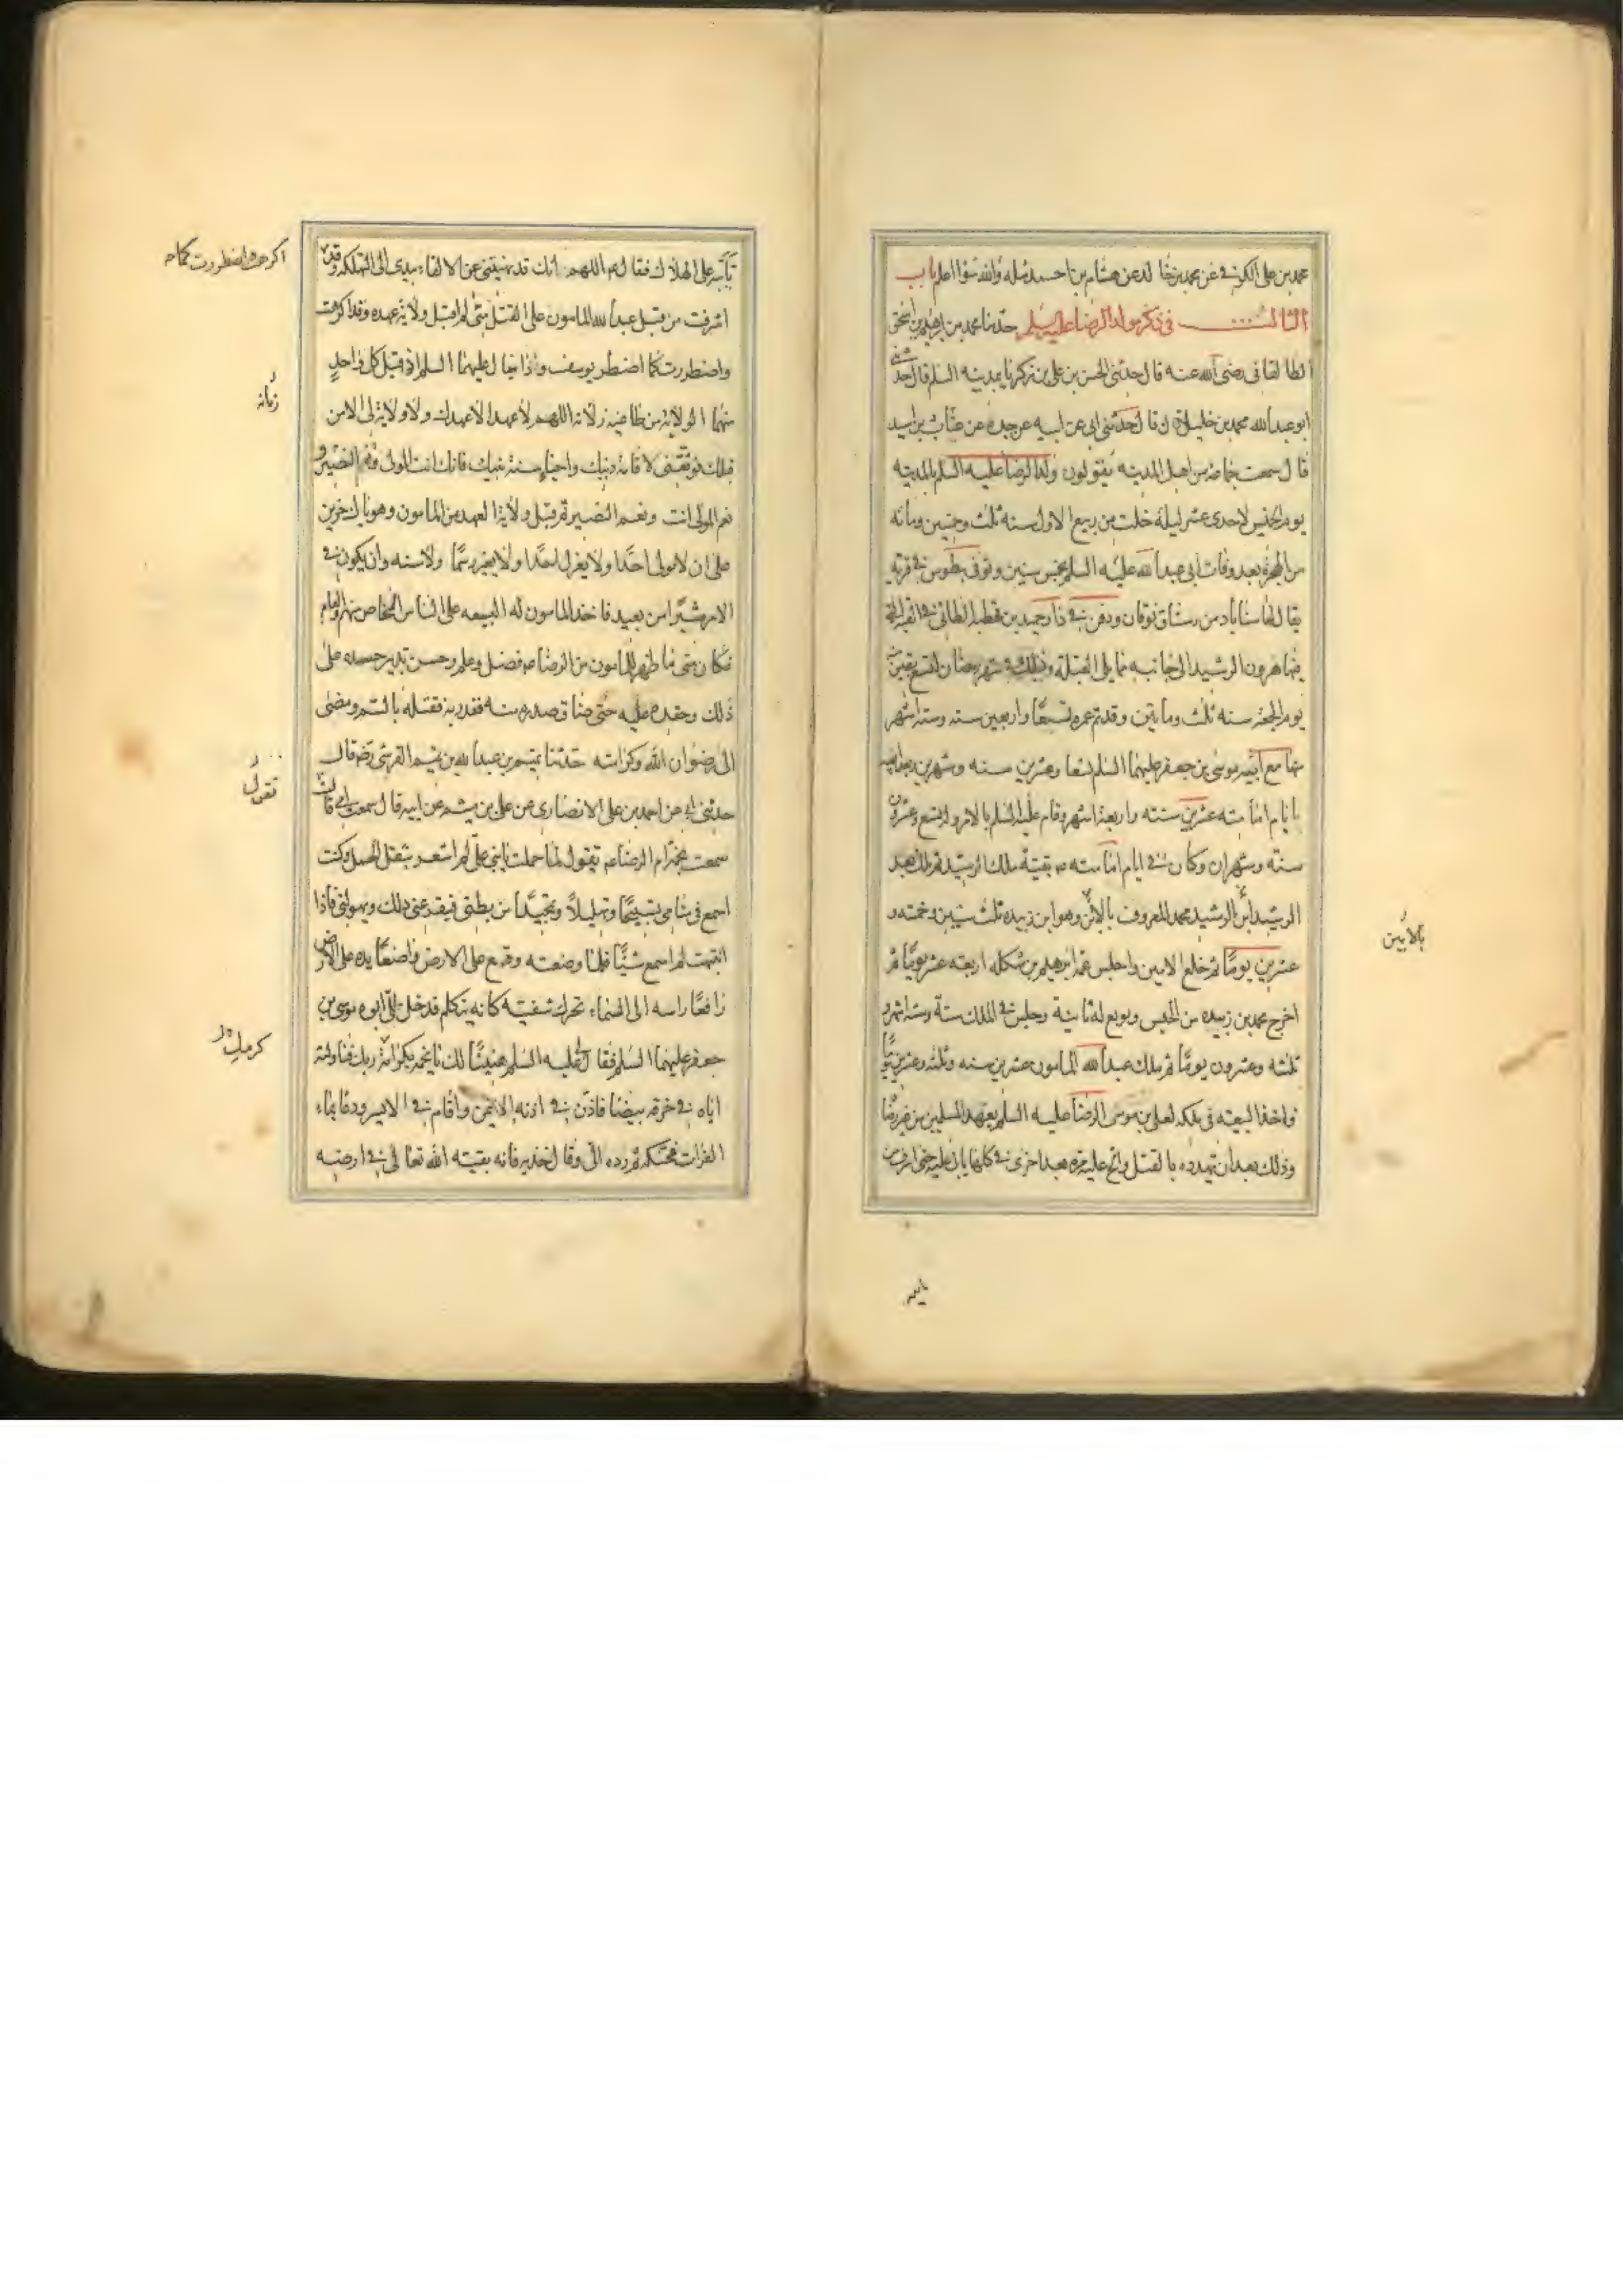 محمد بن على الكوفى عن محمد بن خالد عن هشام بن احمد مثله والله سوا اعلم باب
الثالث فى ذكر مولد الرضا عليه السلم حدثنا محمد بن ابرهيم بن اسحق
الطالقانى رضى الله عنه قال حدثنى الحسن بن على بن زكريا بمدينه السلم قال حدثنى
ابو عبدالله محمد بن خليلان قال حدثنى ابى عن ابيه عن جده عن عتاب بن اسيد
قال سمعت جماعه من اهل المدينه يقولون ولد الرضا عليه السلم بالمدينه
يوم الخميس لاحدى عشر ليلة خلت من ربيع الاول سنه ثلث وخمسين ومائه
من الهجرة بعد وفات ابى عبدالله عليه السلم بخمس سنين وتوفى بطوس فى قرية
يقال لها سناباد من رستاق نوقان ودفن فى دار حميد بن قحطبة الطائى فى القبة التى
فيها هرون الرشيد الى جانبه مما يلى القبلة وذلك فى شهر رمضان لتسع بقين منه
يوم الجمعة سنه ثلث ومايتين وقد تم عمره تسعا واربعين سنه وستة اشهر
منها مع ابيه موسى بن جعفر عليهما السلم تسعا وعشرين سنه وشهرين وبعد ابيه
بايام امامته عشرين سنته واربعة اشهر وقام عليه السلم بالامر وله تسع وعشرون
سنته وشهران وكان فى ايام امامته ع بقية ملك الرشيد ثم ملك بعد
الرشيد ابن الرشيد محمد المعروف بالامين وهو ابن زبيده ثلث سنين وخمسه و
عشرين يوما ثم خلع الامين واجلس عمه ابرهيم بن شكله اربعته عشر يوما ثم
اخرج محمد بن زبيده من الحبس وبويع له ثانية وجلس فى الملك سنة وستة اشهر و
ثلثه وعشرون يوما ثم ملك عبدالله المامون عشرين سنه وثلثه وعشرين يوما
فاخذ البيعته فى ملكه لعلى بن موسى الرضا عليه السلم بعهد المسلمين من غير رضا
وذلك بعد ان تهدده بالقتل والح عليه مرة بعد اخرى فى كلها يابى عليه حتى اشرف من
بالامين
تأبيه على الهلاك فقال ع اللهم انك قد نهيتنى عن الالقاء بيدى الى التهلكه وقد
اشرفت من قبل عبدالله المامون على القتل متى لم اقبل ولاية عهده وقد اكرهت
واضطررت كما اضطر يوسف ودانيال عليهما السلم اذ قبل كل واحد
منهما الولاية من طاغية زمانه اللهم لا عهد الا عهدك ولا ولاية لى الا من
قبلك فوفقنى لاقامة دينك واحياء سنة نبيك فانك انت المولى ونعم النصير و
نعم المولى انت ونعم النصير ثم قبل ولاية العهد من المامون وهو باك حزين
على ان لا يولى احدا ولا يعزل احدا ولا يغير رسما ولا سنه وان يكون فى
الامر مشيرا من بعيد فاخذ المامون له البيعه على الناس الخاص منهم والعام
فكان متى ما ظهر للمامون من الرضا ع فضل وعلم وحسن تدبير حسده على
ذلك وحقده عليه حتى ضاق صدره منه فغدر به فقتله بالسم ومضى
الى رضوان الله وكرامته حدثنا تميم بن عبدالله بن تميم القرشى رضه قال
حدثنى ابى عن احمد بن على الانصارى عن على بن ميثم عن ابيه قال سمعت امى قالت
سمعت نجمة ام الرضا ع تقول لما حملت بابنى على لم اشعر بثقل الحمل وكنت
اسمع فى منامى تسبيحا وتهليلا وتمجيدا من بطنى فيفزعنى ذلك ويهولنى فاذا
انتبهت لم اسمع شيئا فلما وضعته وقع على الارض واضعا يده على الارض
رافعا راسه الى السماء تحرك شفتيه كانه يتكلم فدخل الى ابوه موسى بن
جعفر عليهما السلم فقال لى عليه السلم هنيئا لك يا نجمه بكرامة ربك فناولته
اياه فى خرقه بيضا فاذن فى اذنه الايمن واقام فى الايسر ودعا بماء
الفرات فحنكه ثم رده الى وقال خذيه فانه بقيته الله تعالى فى ارضه
اكرهت واضطررت كما
زمانه
تقول